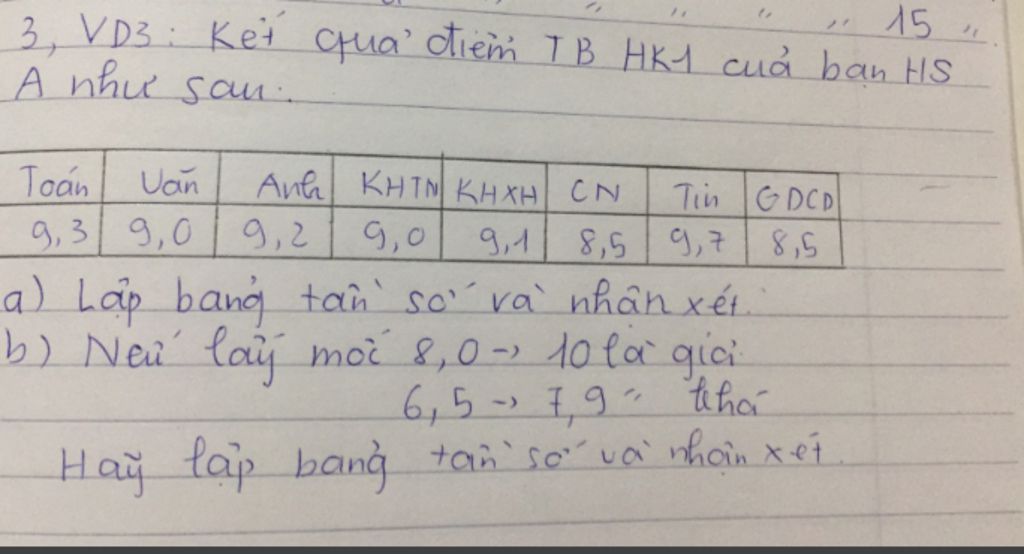 " " " " 15 ".
3, VD3: Kết quả điểm TB HK1 của bạn HS
A như sau:
Toán Văn Anh KHTN KHXH CN Tin GDCD
9,3 9,0 9,2 9,0 9,1 8,5 9,7 8,5
a) Lập bảng tần số và nhận xét.
b) Nếu lấy mốc 8,0 → 10 là giỏi
6,5 → 7,9 " khá
Hãy lập bảng tần số và nhận xét.